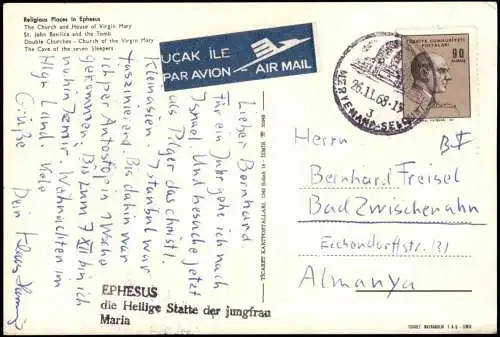 Religious Places in Ephesus
The Church and House of Virgin Mary
St. John Basilica and the Tomb
Double Churches - Church of the Virgin Mary
The Cave of the seven Sleepers
UÇAK İLE
PAR AVION - AIR MAIL
MERYEMANA-SELÇ
26.11.68-15
3
TÜRKİYE CUMHURİYETİ
POSTALARI
90
KURUŞ
Lieber Bernhard.
Für ein Jahr gehe ich nach
Israel und besuche jetzt
als Pilger das christl.
Kleinasien. Istanbul war
faszinierend. Bis dahin war
ich per Autostop in 1 Woche
gekommen. Bis zum 7. XII bin ich
noch in Izmir. Weihnachten im
Hlgn Land. Viele
Grüße Dein Klaus
Herrn
Bernhard Freisel
Bad Zwischenahn
Eichendorffstr. 31
Almanya
EPHESUS
die Heilige Statte der jungfrau
Maria
TİCARET KARTPOSTALLARI,
TİCARET MATBAACILIK T.A.Ş. - İZMİR